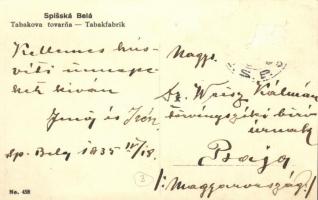 Spišská Belá
Tabakova tovarňa — Tabakfabrik
Kellemes hús-
véti ünnepe-
ket kíván
Jenő és Irén
Sp. Bela 1935 IV/18.
Nagys.
Dr. Weisz Kálmán
törvényszéki bíró
úrnak
Baja
/: Magyarország :/
3
No. 458